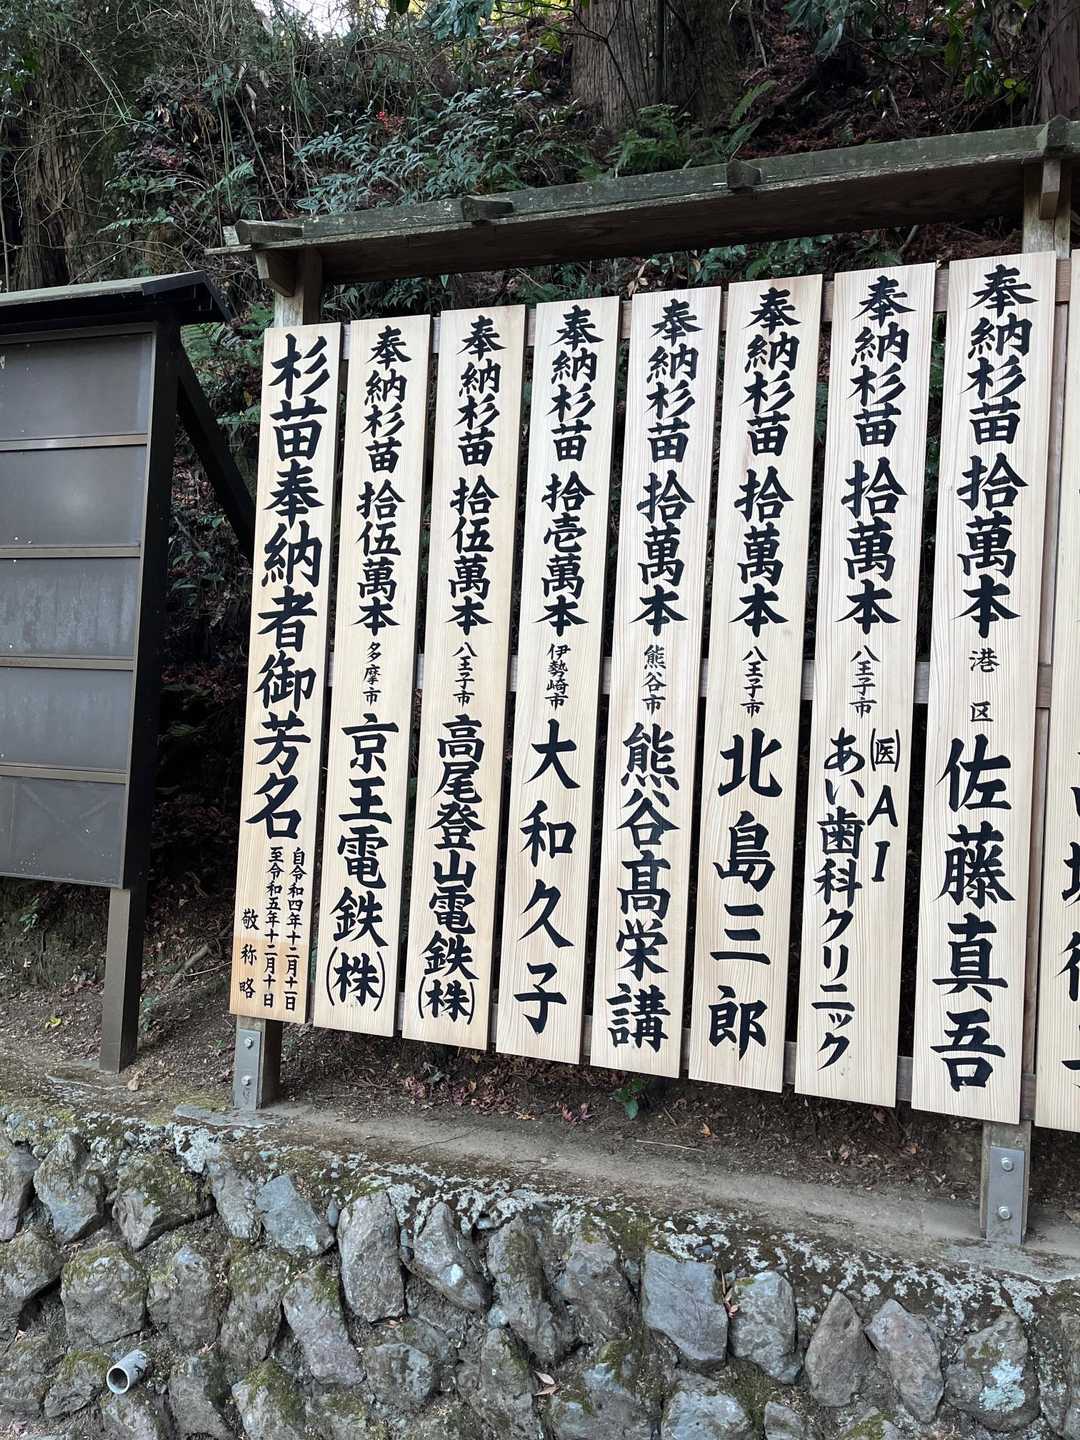 杉苗奉納者御芳名
自令和四年十二月十一日
至令和五年十二月十日
敬称略
奉納杉苗 拾伍萬本 多摩市 京王電鉄(株)
奉納杉苗 拾伍萬本 八王子市 高尾登山電鉄(株)
奉納杉苗 拾壱萬本 伊勢崎市 大和久子
奉納杉苗 拾萬本 熊谷市 熊谷髙栄講
奉納杉苗 拾萬本 八王子市 北島三郎
奉納杉苗 拾萬本 八王子市 (医)AI
あい歯科クリニック
奉納杉苗 拾萬本 港区 佐藤真吾